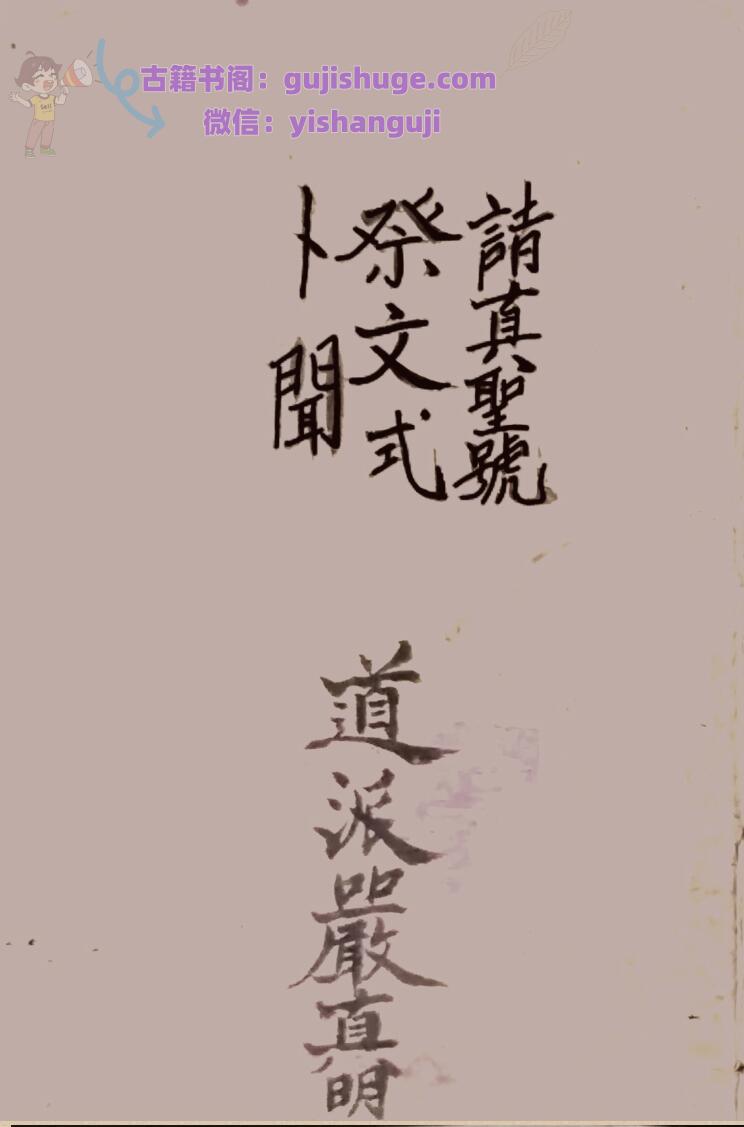 古籍书阁：gujishuge.com
微信：yishanguji
請真聖號
祭文式
卜聞
道派嚴真明